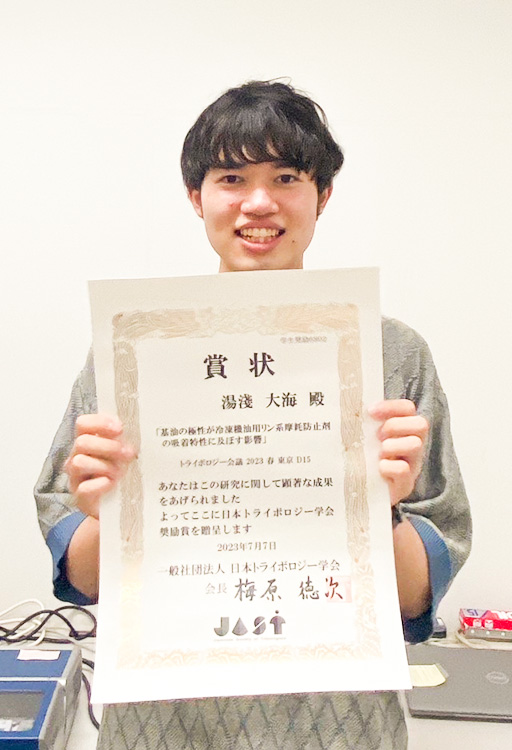 賞状
湯淺 大海 殿
「基油の極性が冷凍機油用リン系摩耗防止剤
の吸着特性に及ぼす影響」
トライボロジー会議 2023 春 東京 D15
あなたはこの研究に関して顕著な成果
をあげられました
よってここに日本トライボロジー学会
奨励賞を贈呈します
2023年7月7日
一般社団法人 日本トライボロジー学会
会長 梅原 徳次
JAST